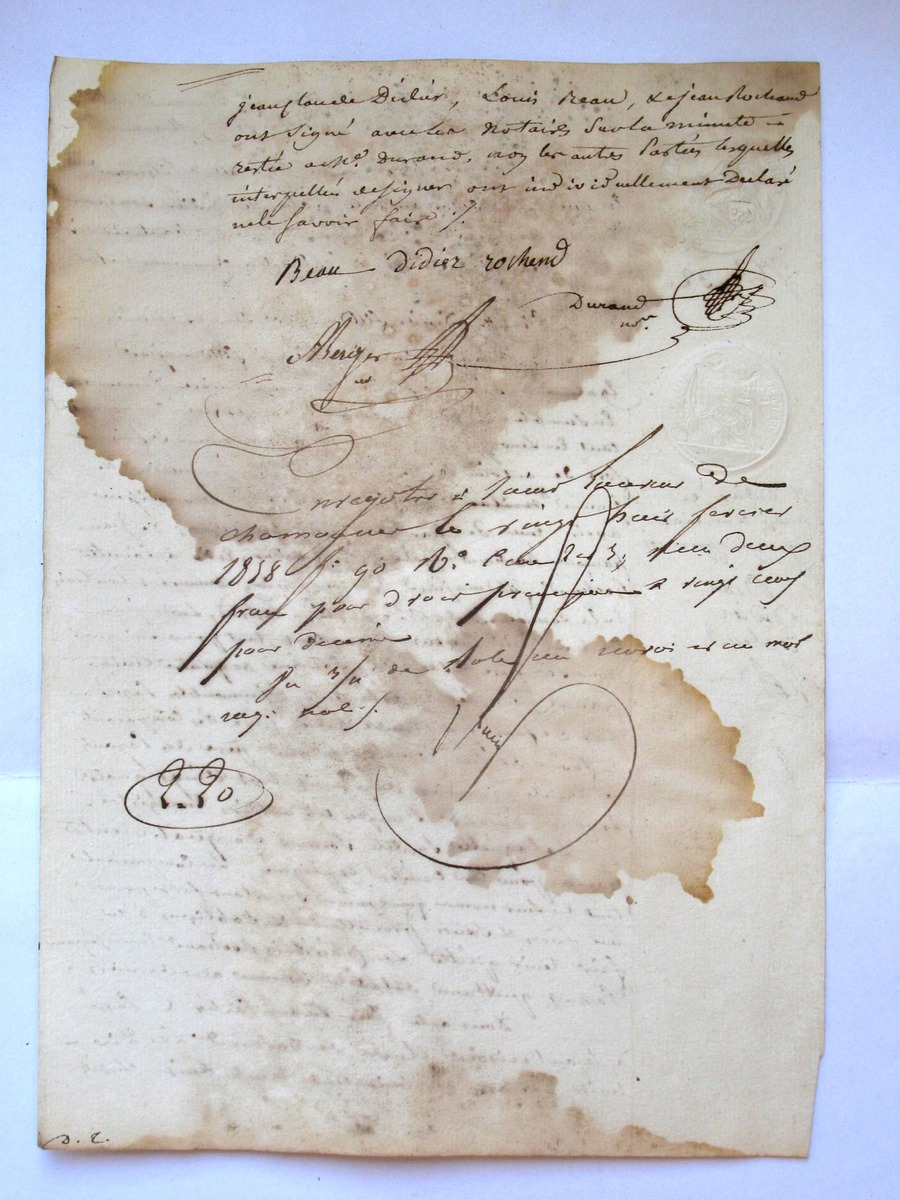 jean Claude Didier, Louis Beau, & jean Rochand
ont Signé avec les Notaires Sur la minute
restée a Me. Durand, non les autres Parties lesquelles
interpellés de signer ont individuellement Declaré
ne le Savoir faire ./.
Beau Didier rochend
Durand
nre
Berger
nre
Enregistré à Saint Laurent de
chamousset le vingt huit fevrier
1818 fo. 90 Ro. Case 2 & 3, reçu deux
franc pour droit principal & vingt cent
pour decime
de rôle un renvoi et un mot
nul ./.
2.20
D. L.